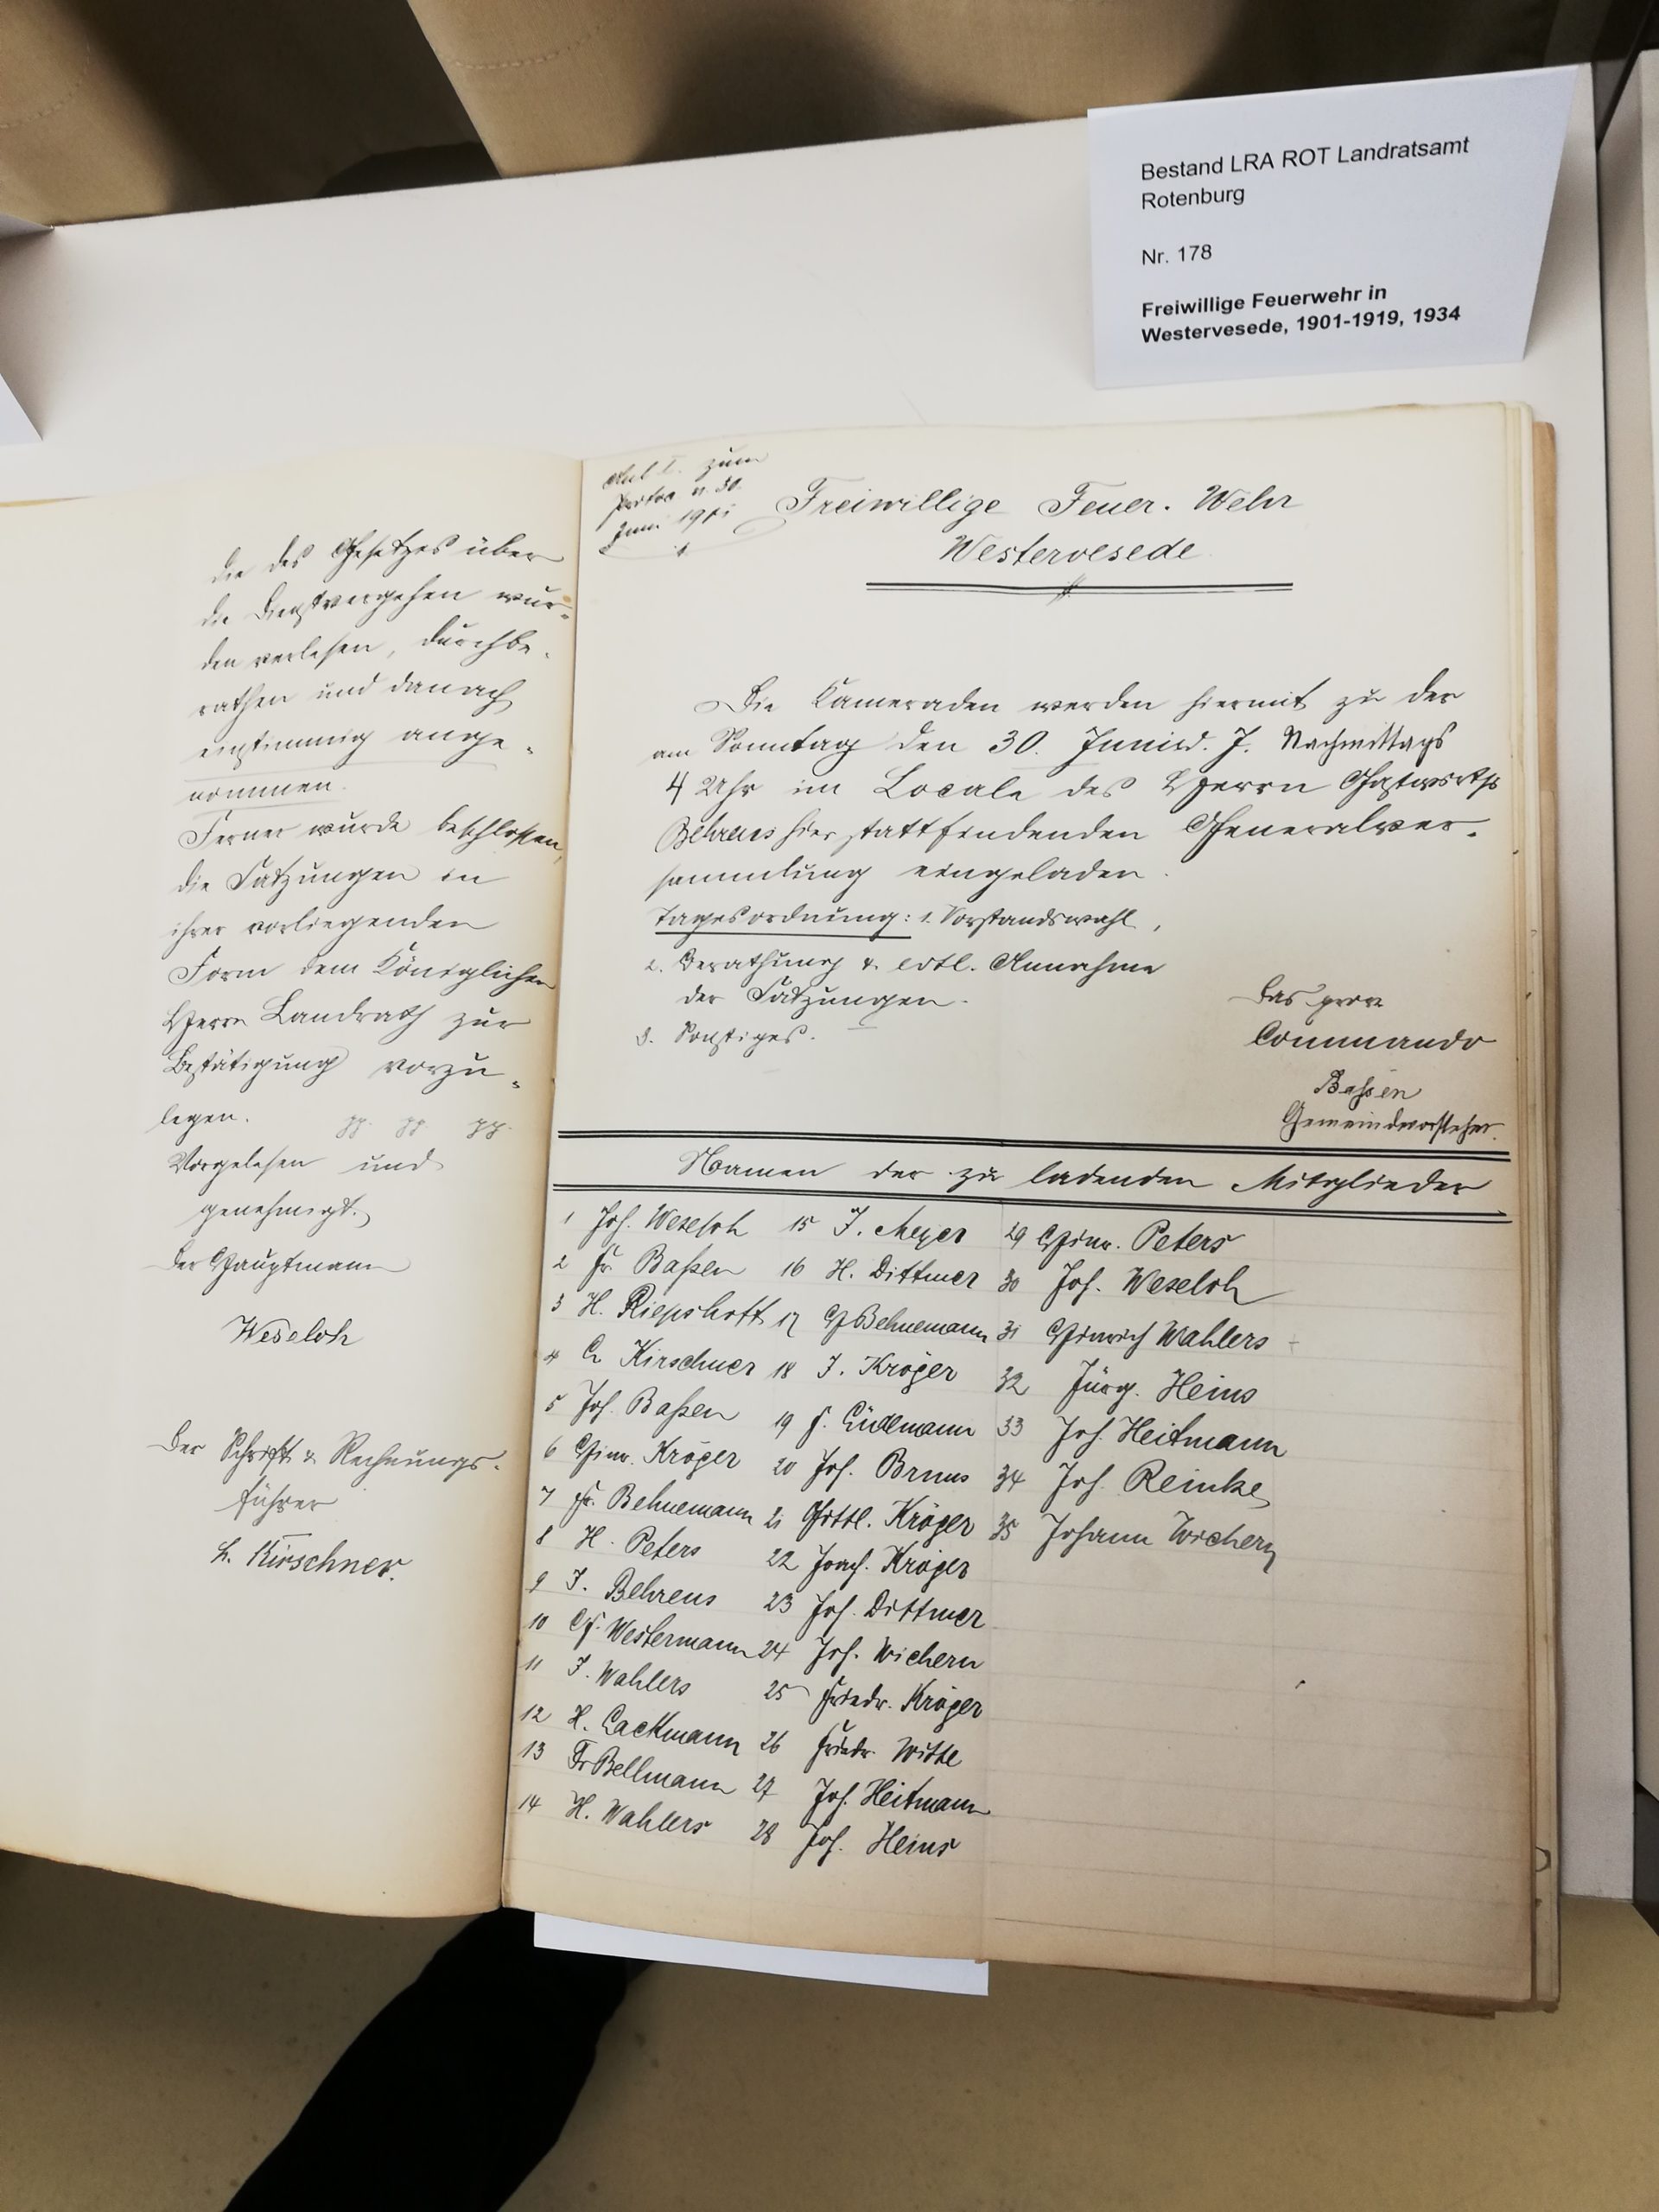 Bestand LRA ROT Landratsamt
Rotenburg
Nr. 178
Freiwillige Feuerwehr in
Westervesede, 1901-1919, 1934
die des Gesetzes über
die Dienstvergehen wur-
den verlesen, durchbe-
rathen und danach
einstimmig ange-
nommen.
Ferner wurde beschlossen,
die Satzungen in
ihrer vorliegenden
Form dem Königlichen
Herrn Landrath zur
Bestätigung vorzu-
legen.
Vorgelesen und
genehmigt.
Der Hauptmann
Weseloh
Der Schrift & Rechnungs-
führer
Kirschner.
zum
v. 30.
Juni 1901
Freiwillige Feuer-Wehr
Westervesede
Die Kameraden werden hiermit zu der
am Sonntag den 30. Juni d. J. Nachmittags
4 Uhr im Locale des Herrn Gastwirths
Behrens hier stattfindenden Generalver-
sammlung eingeladen.
Tagesordnung: 1. Vorstandswahl,
2. Berathung & evtl. Annahme
der Satzungen.
3. Sonstiges.
Das prov.
Commando
Baßen
Gemeindevorsteher.
Namen der zu ladenden Mitglieder
1 Joh. Weseloh
2 Fr. Baßen
3 H. Riepshoff
4 Kirschner
5 Joh. Baßen
6 Hinr. Kröger
7 Fr. Behnemann
8 H. Peters
9 J. Behrens
10 Westermann
11 J. Wahlers
12 H. Lackmann
13 Fr Bellmann
14 H. Wahlers
15 J. Meyer
16 H. Dittmer
17 H Behnemann
18 J. Kröger
19 Lüdemann
20 Joh. Bruns
21 Gottl. Kröger
22 Joach. Kröger
23 Joh. Dittmer
24 Joh. Wichern
25 Friedr. Kröger
26 Friedr. Witte
27 Joh. Heitmann
28 Joh. Heins
29 Hinr. Peters
30 Joh. Weseloh
31 Hinrich Wahlers
32 Jürg. Heins
33 Joh. Heitmann
34 Joh. Reinke
35 Johann Wichern